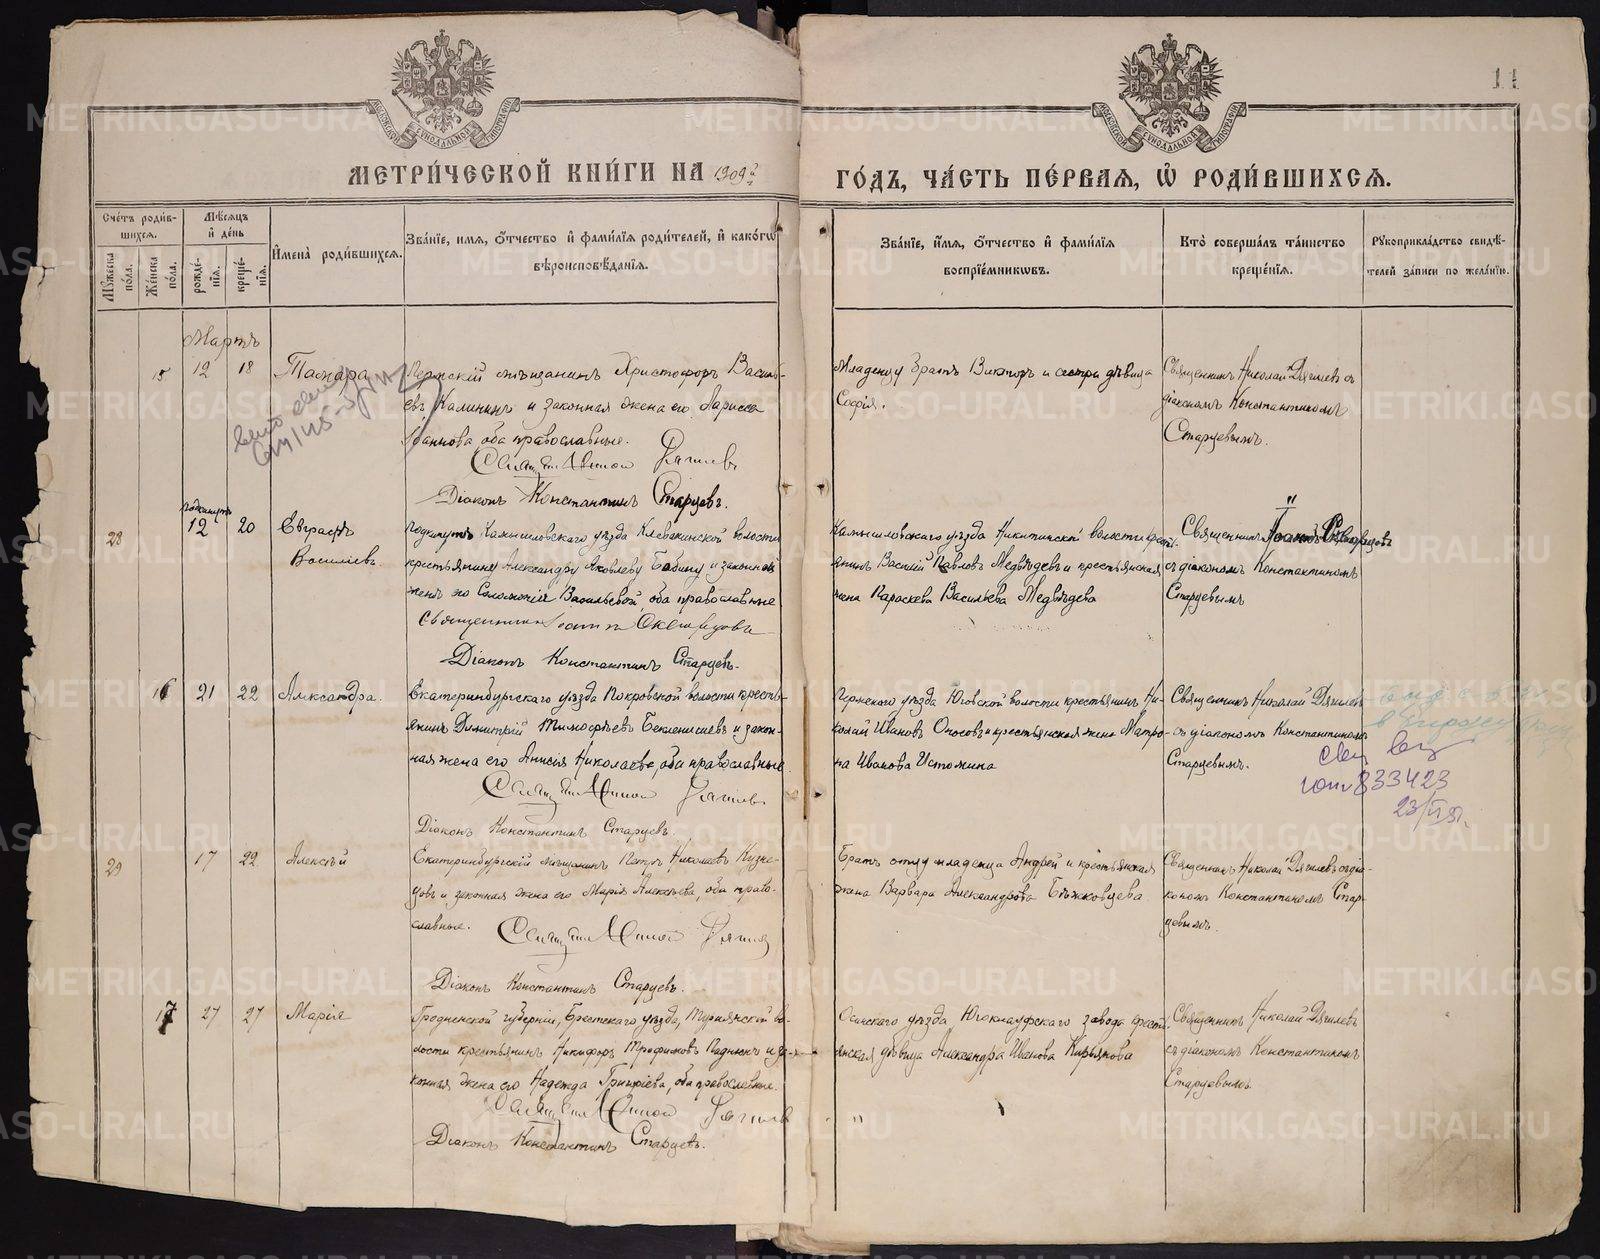 МЕТРИ́ЧЕСКОЙ КНИ́ГИ НА 1909 ГО́ДЪ, ЧА́СТЬ ПЕ́РВАѦ, Ѡ҆ РОДИ́ВШИХСѦ.
Сче́тъ роди́вшихсѧ.
Мꙋ́жеска по́ла.
Же́нска по́ла.
Мѣ́сѧцъ и҆ де́нь
рожде́нїѧ.
креще́нїѧ.
И҆мена̀ роди́вшихсѧ.
Зва́нїе, и҆мѧ, ѻ҆́тчество и҆ фами́лїѧ роди́телей, и҆ како́гѡ
вѣроисповѣ́данїѧ.
Зва́нїе, и҆́мѧ, ѻ҆́тчество и҆ фами́лїѧ
воспрїе́мникѡвъ.
Кто̀ соверша́лъ та́инство
креще́нїѧ.
Рꙋкоприкла́дство свидѣ́телей за́писи по жела́нїю.
Мартъ
15 12 18 Тамара
Пермскій мѣщанинъ Христофоръ Василь-
евъ Калининъ и законная жена его Ларисса
Иванова, оба православные.
Діаконъ Константинъ Старцевъ.
Младенцу братъ Викторъ и сестра дѣвица
Софія.
Священникъ Николай Дягилевъ съ
діакономъ Константиномъ
Старцевымъ.
28 подкинутъ 12 20 Евграфъ
Василіевъ.
Подкинутъ Камышловскаго уѣзда Клевакинской волости
крестьянину Александру Яковлеву Бабину и законной
женѣ его Соломоніи Васильевой, оба православные
Діаконъ Константинъ Старцевъ.
Камышловскаго уѣзда Никитинской волости крест-
янинъ Василій Павловъ Медвѣдевъ и крестьянская
жена Параскева Васильева Медвѣдева
Священникъ Іоаннъ
съ діакономъ Константиномъ
Старцевымъ
16 21 22 Александра.
Екатеринбургскаго уѣзда Покровской волости кресть-
янинъ Димитрій Тимофѣевъ Бекленищевъ и закон-
ная жена его Анисія Николаева, оба православные.
Діаконъ Константинъ Старцевъ.
Пермскаго уѣзда Юговской волости крестьянинъ Ни-
колай Ивановъ и крестьянская жена Матро-
на Иванова Истомина
Священникъ Николай Дягилевъ
съ діакономъ Константиномъ
Старцевымъ.
833423
29 17 22 Алексѣй
Екатеринбургскій мѣщанинъ Петръ Николаевъ Кузне-
цовъ и законная жена его Марія Алексѣева, оба право-
славные.
Діаконъ Константинъ Старцевъ.
Братъ отцу младенца Андрей и крестьянская
жена Варвара Александрова Бѣжковцева
Священникъ Николай Дягилевъ съ діа-
кономъ Константиномъ Стар-
цевымъ.
17 27 27 Марія
Гродненской губерніи, Брестскаго уѣзда, во-
лости крестьянинъ Никифоръ Трофимовъ и за-
конная жена его Надежда Григоріева, оба православные.
Діаконъ Константинъ Старцевъ.
Осинскаго уѣзда Юговскнауфскаго завода крест-
янская дѣвица Александра Иванова Кирьянова
Священникъ Николай Дягилевъ
съ діакономъ Константиномъ
Старцевымъ
METRIKI.GASO-URAL.RU